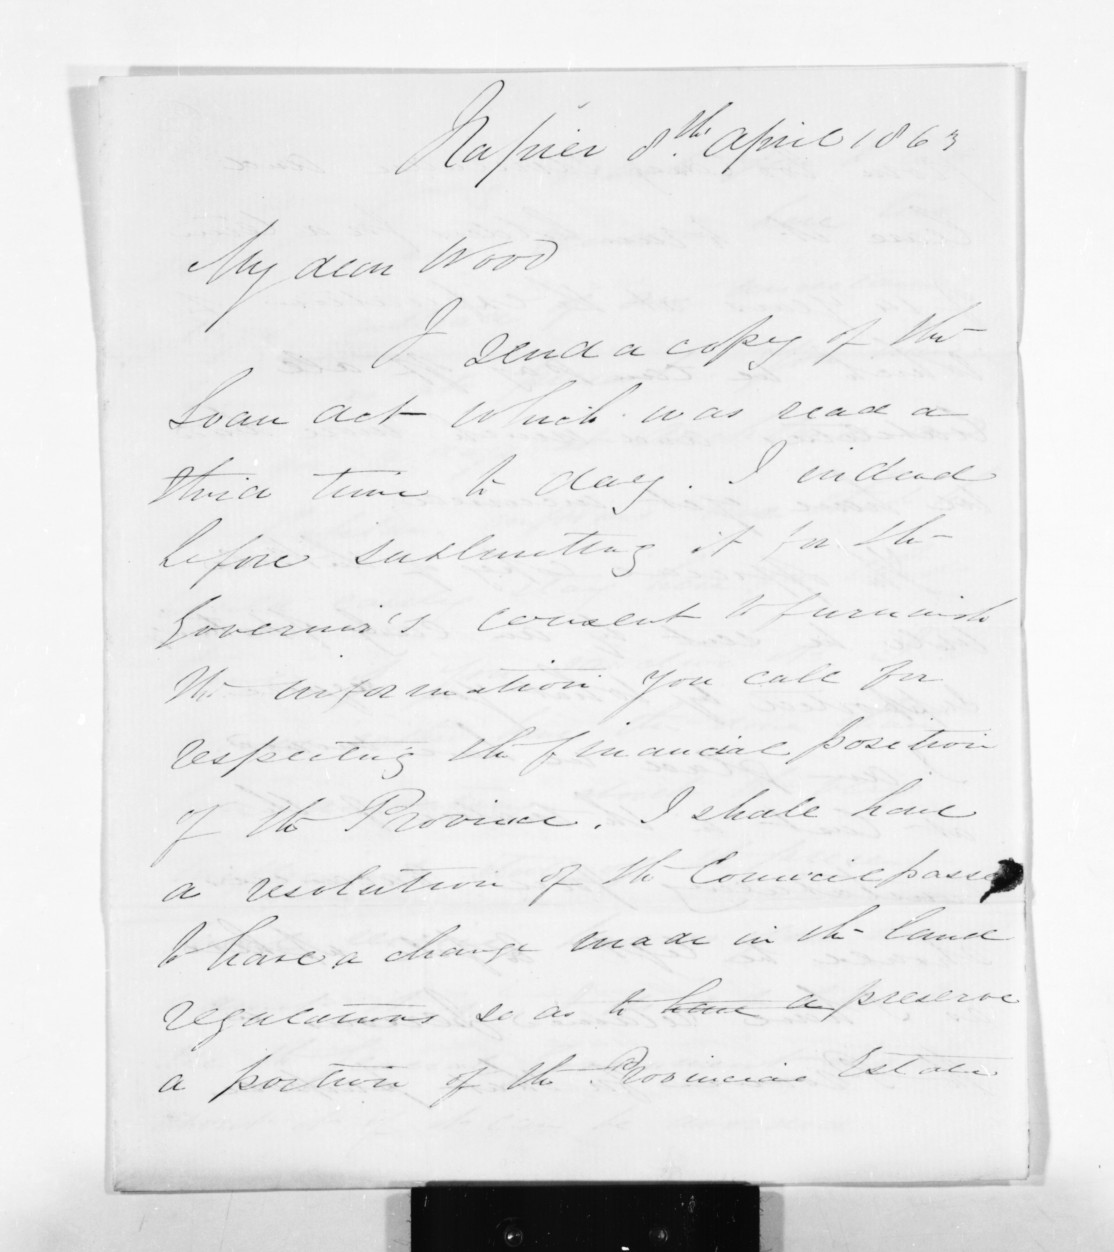 Napier 8th. April 1863
My dear Wood
I send a copy of the
Loan Act which was read a
third time to day. I intend
before submitting it for the
Governor's consent to furnish
the information you call for
respecting the financial position
of the Province. I shall have
a resolution of the Council passed
to have a change made in the land
regulations so as to have a preserve
a portion of the Provincial Estate